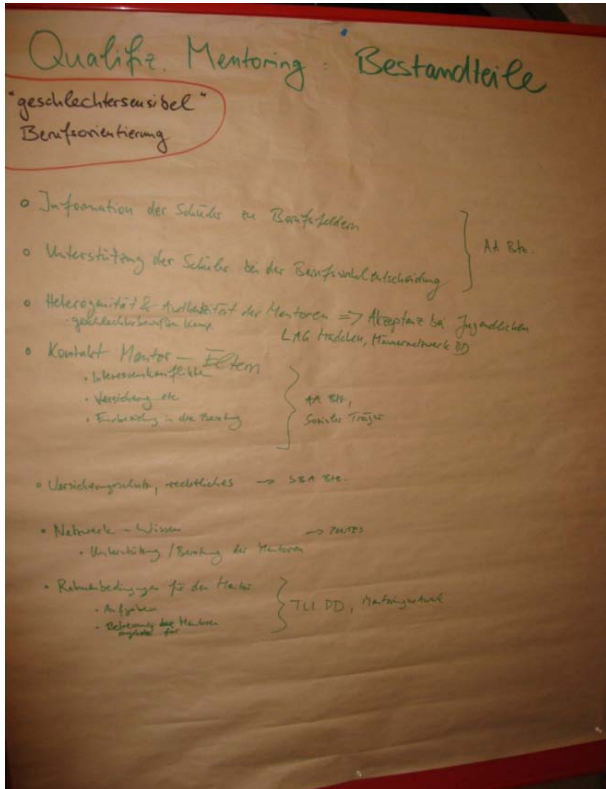 Qualifiz. Mentoring : Bestandteile
"geschlechtersensibel"
Berufsorientierung
Information der Schüler zu Berufsfeldern
Unterstützung der Schüler bei der Berufswahlentscheidung
AA Btz.
Heterogenität & Authentizität der Mentoren => Akzeptanz bei Jugendlichen
LAG Mädchen, Männernetzwerk DD
Kontakt Mentor – Eltern
• Interessenkonflikte
• Versicherung etc.
• Einbeziehung in die Beratung
AA Btz,
Sozialer Träger
• Versicherungsschutz, rechtliches → SBA Btz.
• Netzwerk – Wissen → PONTES
• Unterstützung / Beratung der Mentoren
• Rahmenbedingungen für den Mentor
• Aufgaben
• Betreuung der Mentoren
TLI DD,